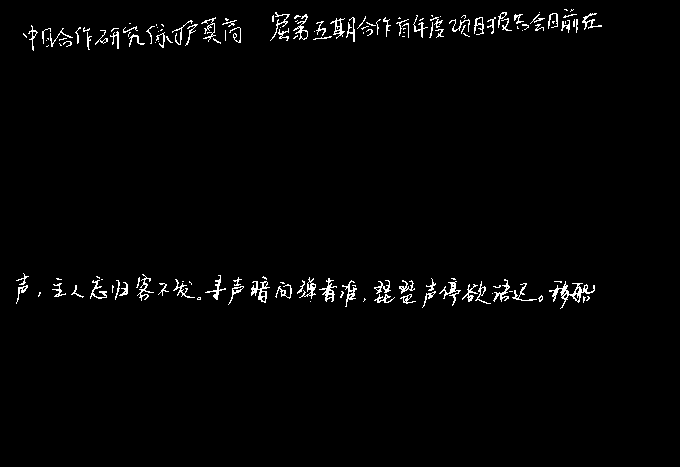 中日合作研究保护莫高 窟第五期合作首年度项目报告会日前在
声，主人忘归客不发。寻声暗问弹者谁，琵琶声停欲语迟。移船